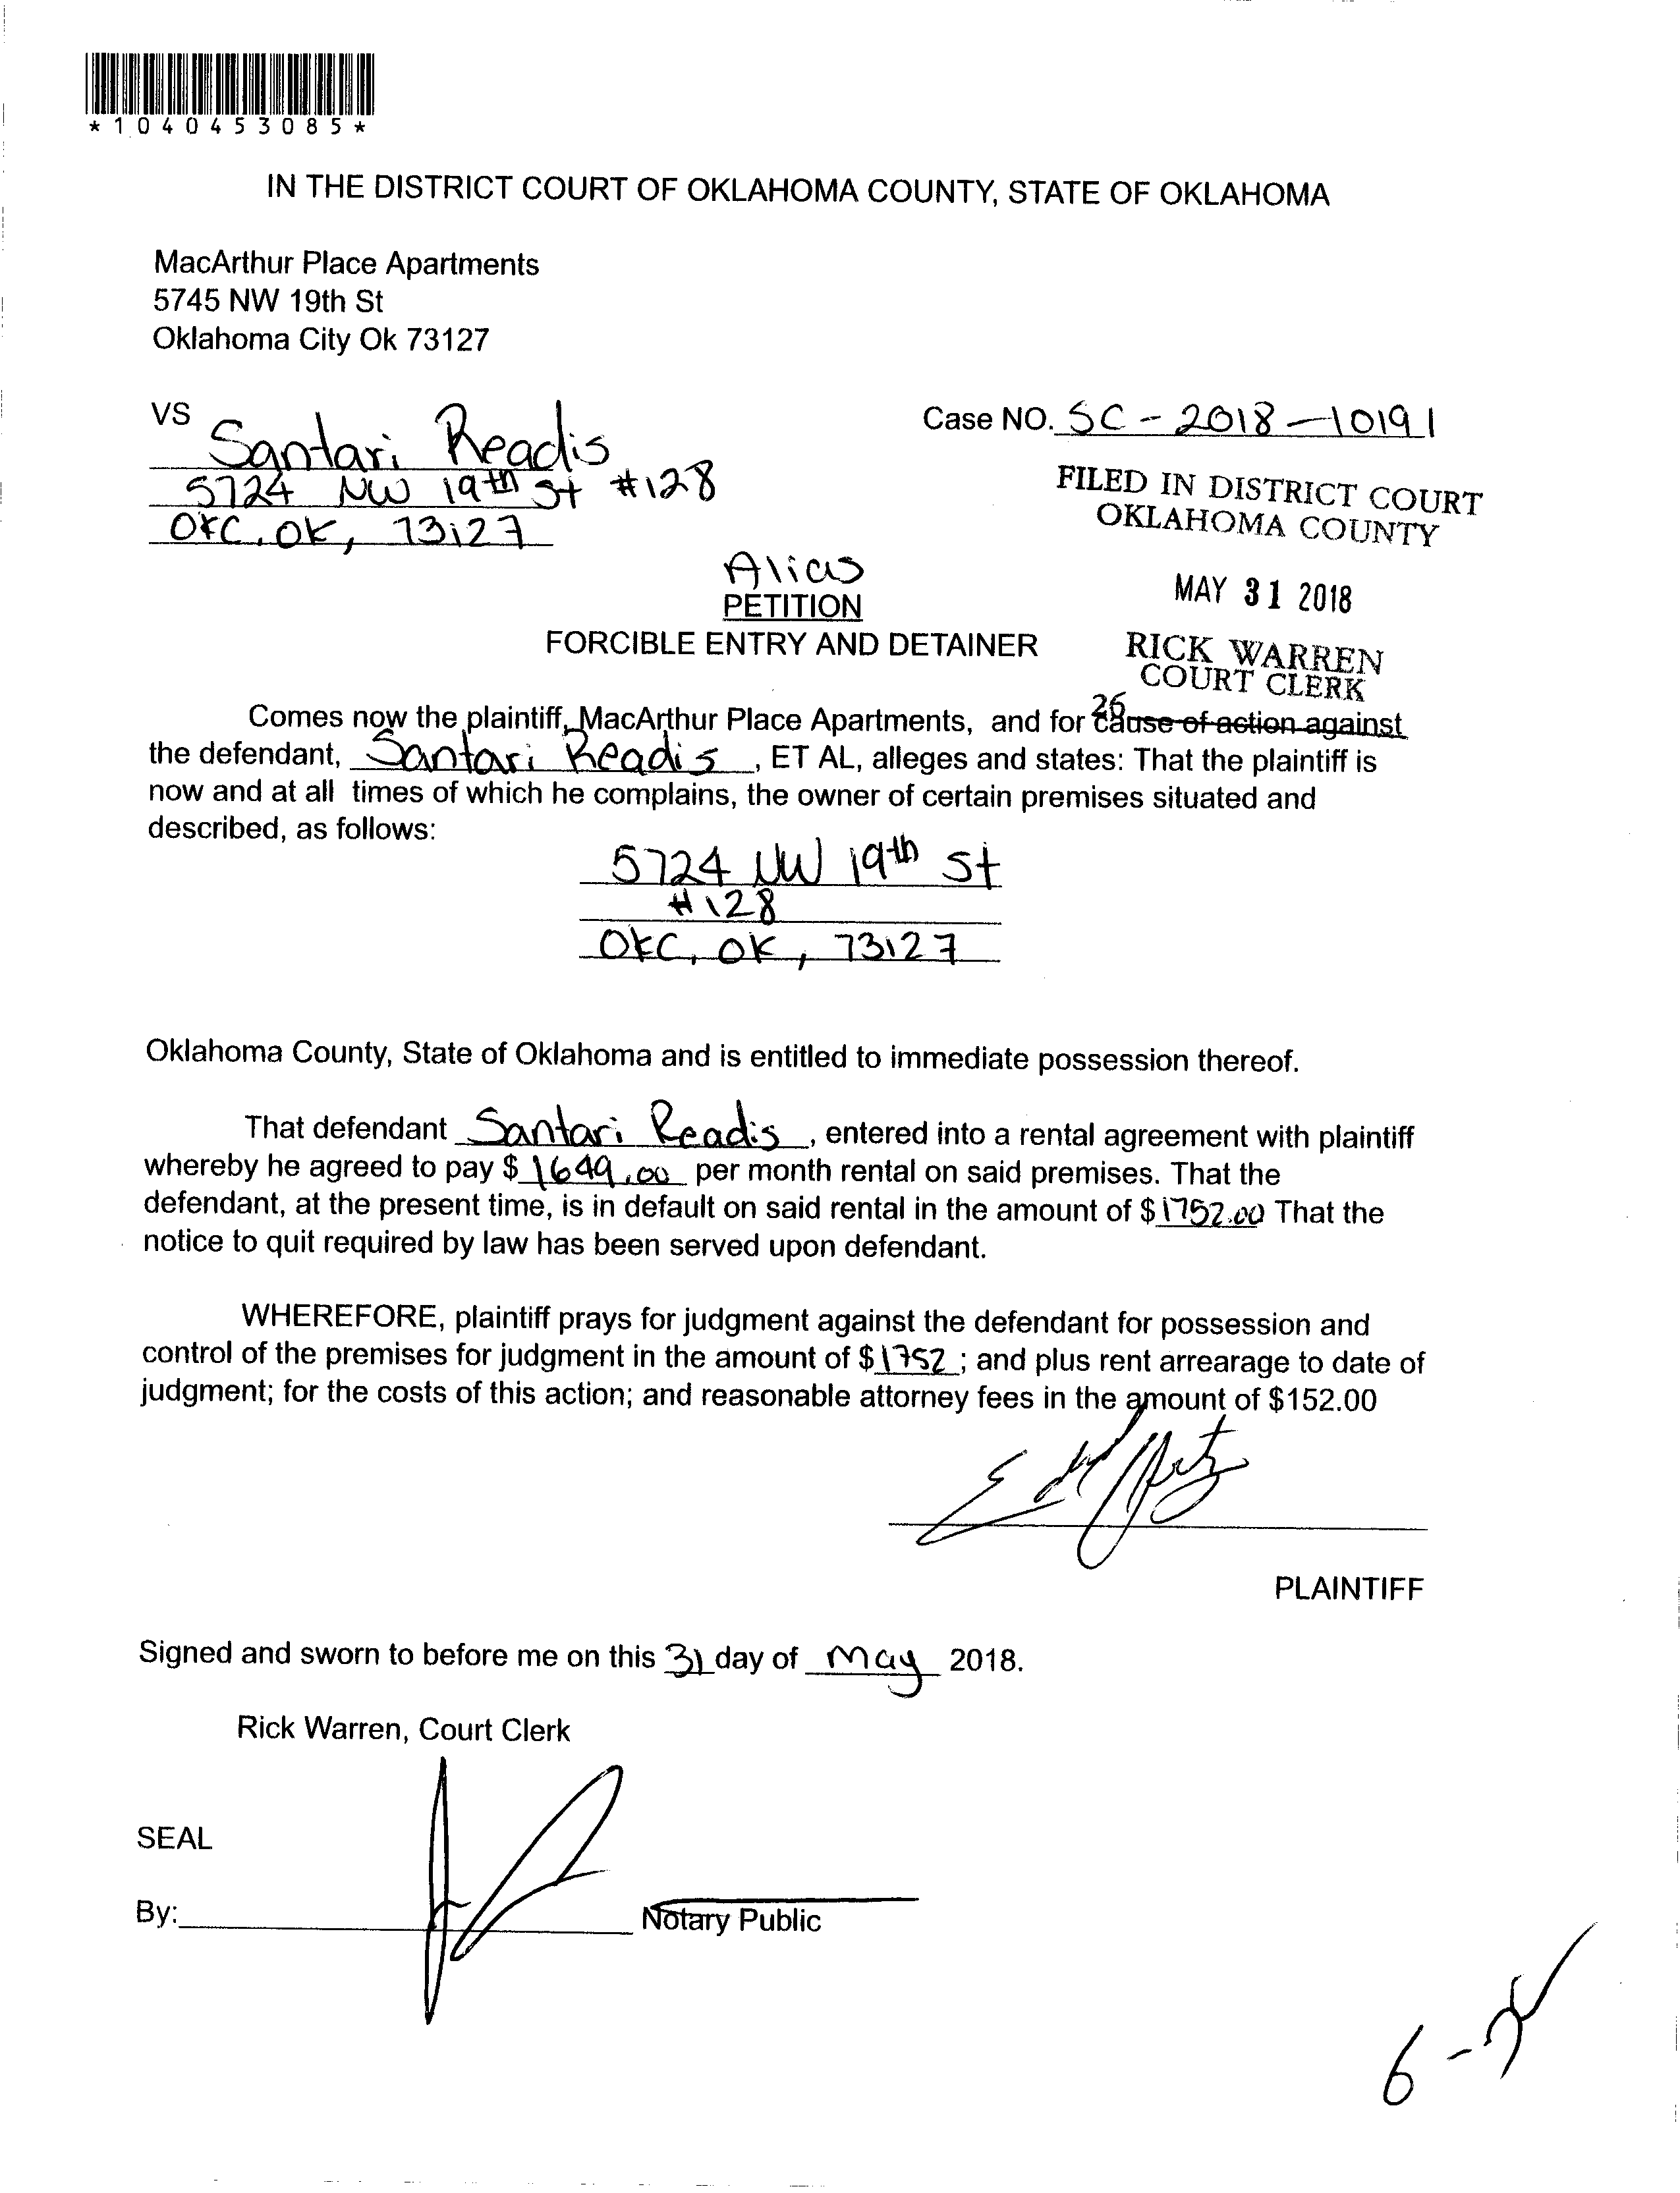 *1040453085*
IN THE DISTRICT COURT OF OKLAHOMA COUNTY, STATE OF OKLAHOMA
MacArthur Place Apartments
5745 NW 19th St
Oklahoma City Ok 73127
VS Santari Readis
5724 NW 19th St #128
OKC, OK, 73127
Case NO. SC-2018-10191
FILED IN DISTRICT COURT
OKLAHOMA COUNTY
MAY 31 2018
RICK WARREN
COURT CLERK
26
Alias
PETITION
FORCIBLE ENTRY AND DETAINER
Comes now the plaintiff, MacArthur Place Apartments, and for cause of action against
the defendant, Santari Readis, ET AL, alleges and states: That the plaintiff is
now and at all times of which he complains, the owner of certain premises situated and
described, as follows:
5724 NW 19th St
#128
OKC, OK, 73127
Oklahoma County, State of Oklahoma and is entitled to immediate possession thereof.
That defendant Santari Readis, entered into a rental agreement with plaintiff
whereby he agreed to pay $ 1649.00 per month rental on said premises. That the
defendant, at the present time, is in default on said rental in the amount of $1752.00 That the
notice to quit required by law has been served upon defendant.
WHEREFORE, plaintiff prays for judgment against the defendant for possession and
control of the premises for judgment in the amount of $1752; and plus rent arrearage to date of
judgment; for the costs of this action; and reasonable attorney fees in the amount of $152.00
PLAINTIFF
Signed and sworn to before me on this 31 day of May 2018.
Rick Warren, Court Clerk
SEAL
By: Notary Public